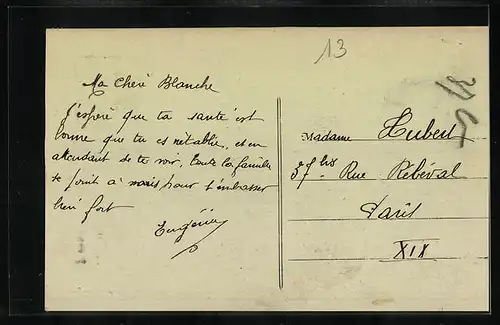 13
Ma Chère Blanche
J'espère que ta santé est
bonne que tu es rétablie, et en
attendant de te voir, toute la famille
se joint à nous pour t'embrasser
bien fort
Eugénie
Madame Hubert
57 bis Rue Rébeval
Paris
XIX